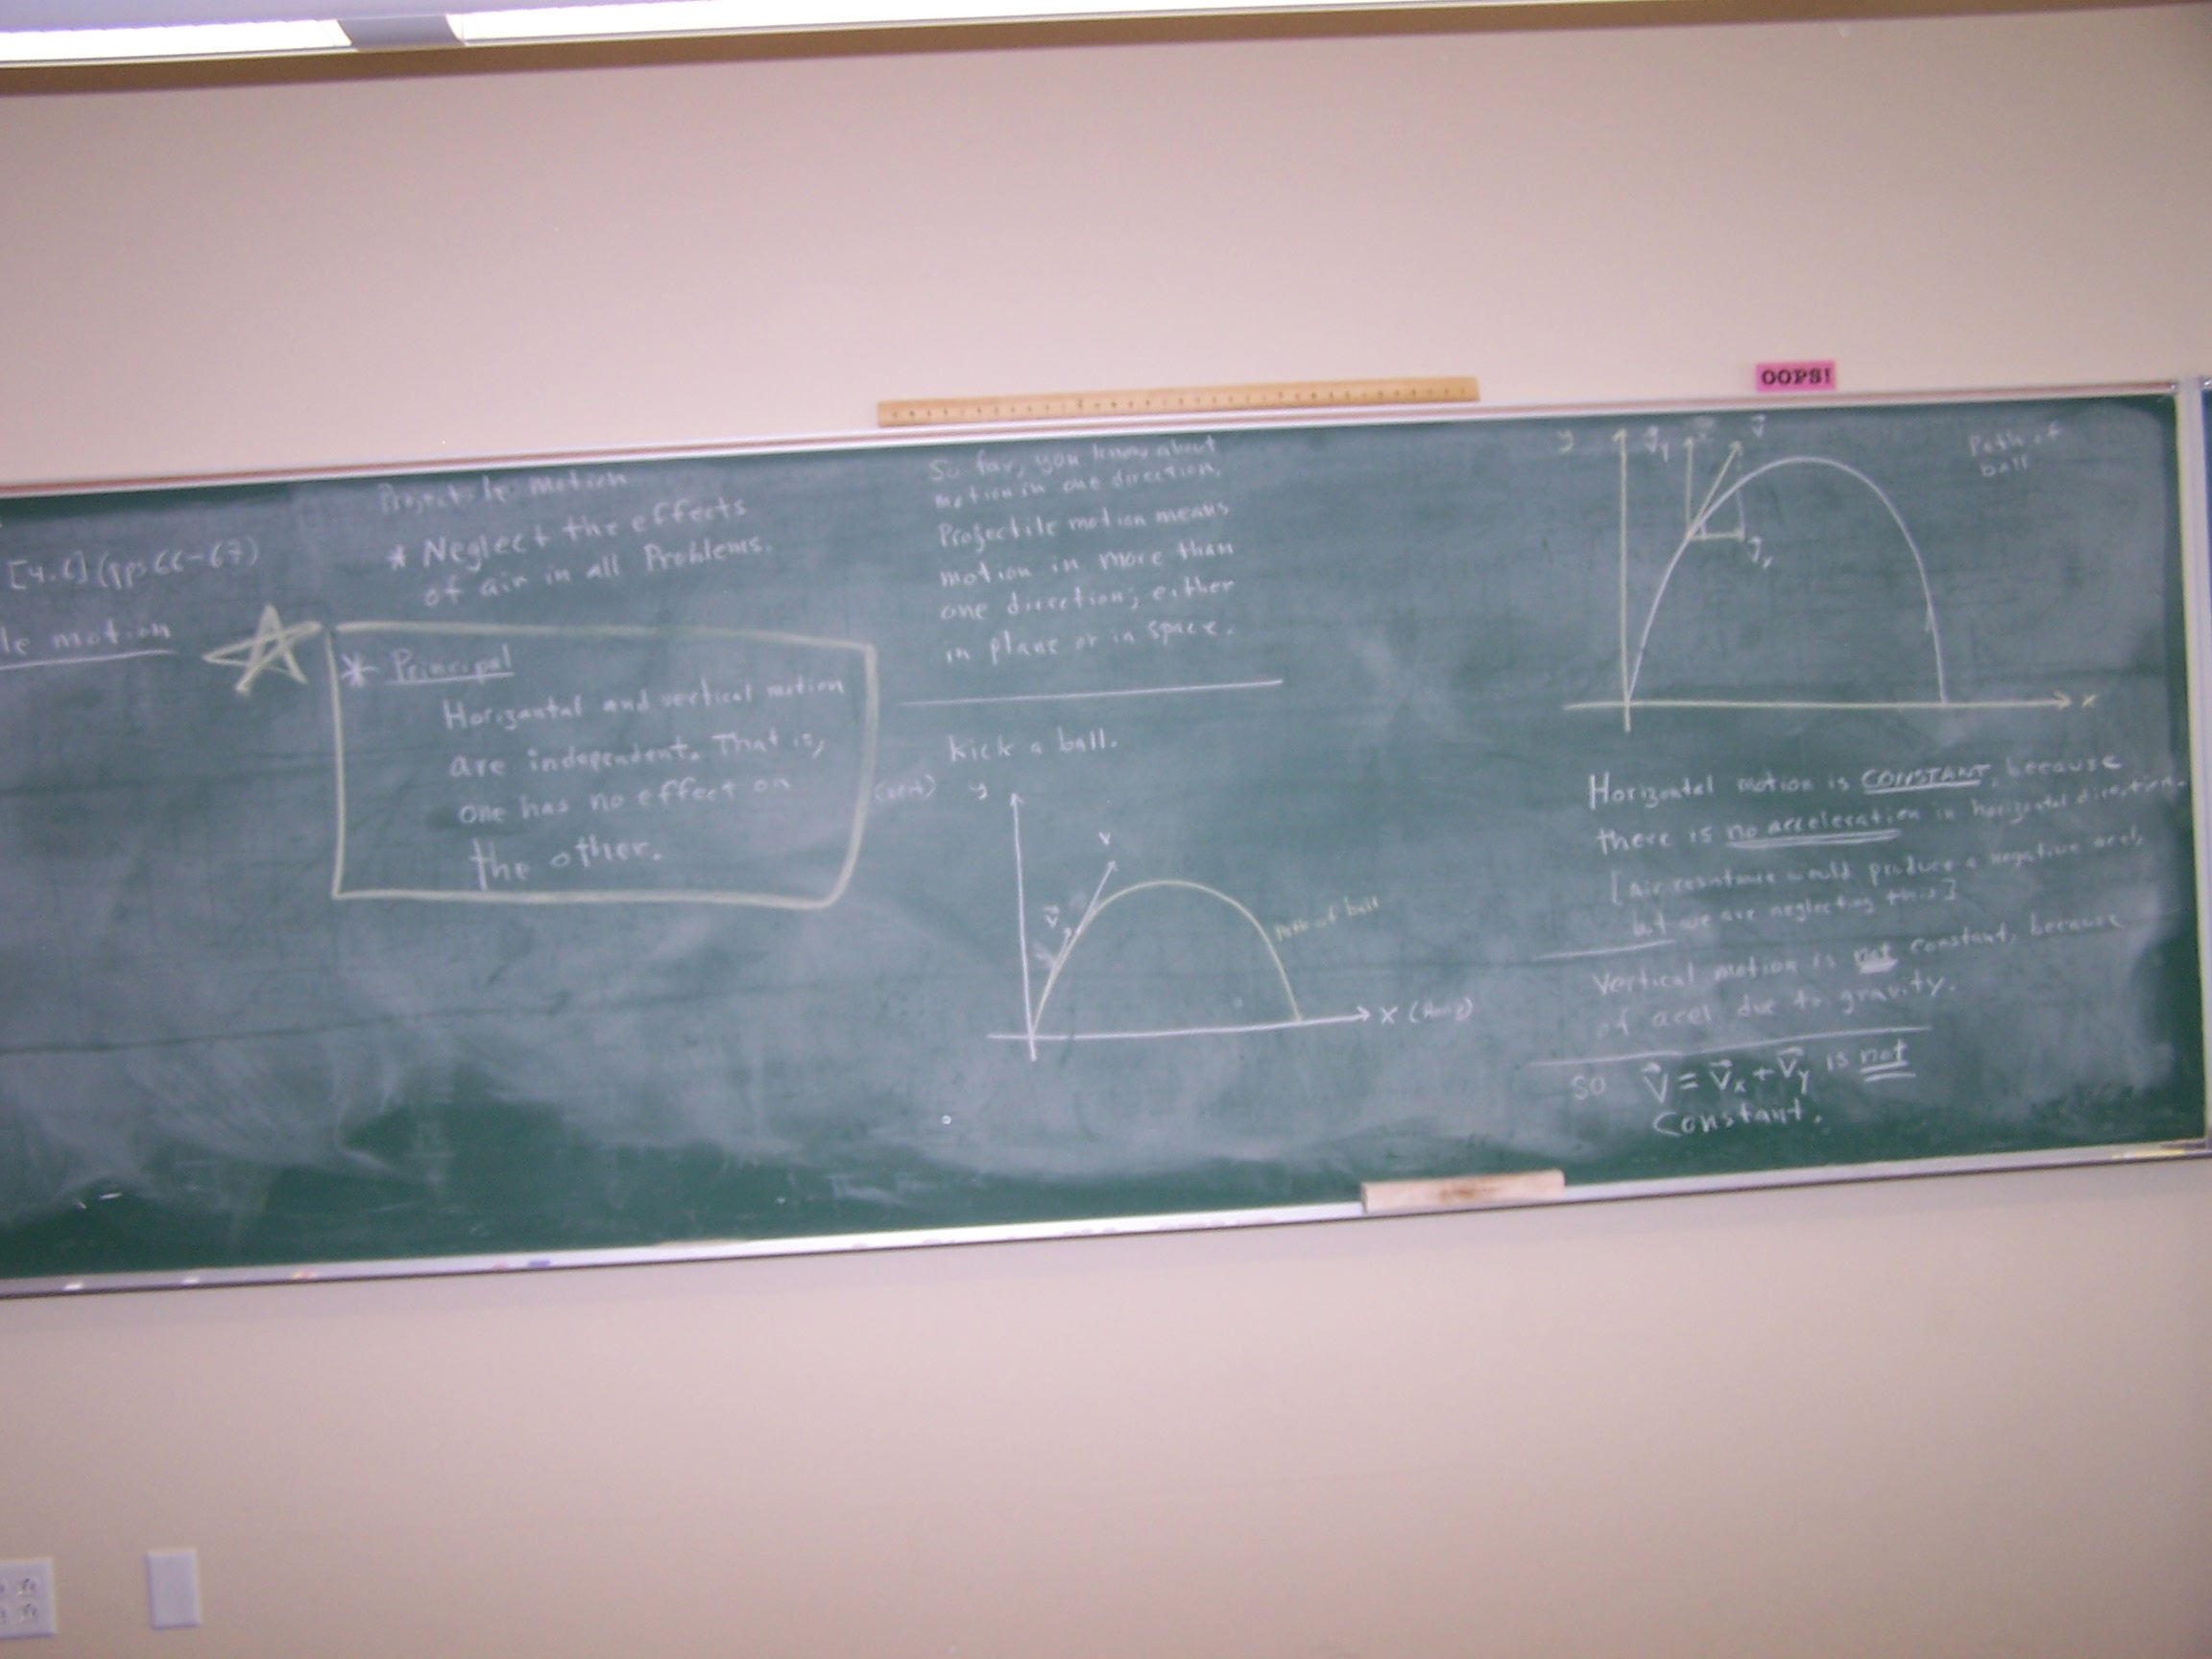 [4.6] (pps 66-67)
le motion
Projectile Motion
* Neglect the effects
of air in all Problems.
* Principal
Horizontal and vertical motion
are independent. That is,
one has no effect on
the other.
So far, you know about
motion in one direction.
Projectile motion means
motion in more than
one direction; either
in plane or in space.
kick a ball.
(vert) y
v
v⃗
Path of ball
x (Horiz)
OOPS!
y
v⃗y
v⃗
v⃗x
x
Path of
ball
Horizontal motion is CONSTANT, because
there is no acceleration in horizontal direction.
[Air resistance would produce a negative accel,
but we are neglecting this]
Vertical motion is not constant, because
of acel due to gravity.
so V⃗ = V⃗x + V⃗y is not
constant.